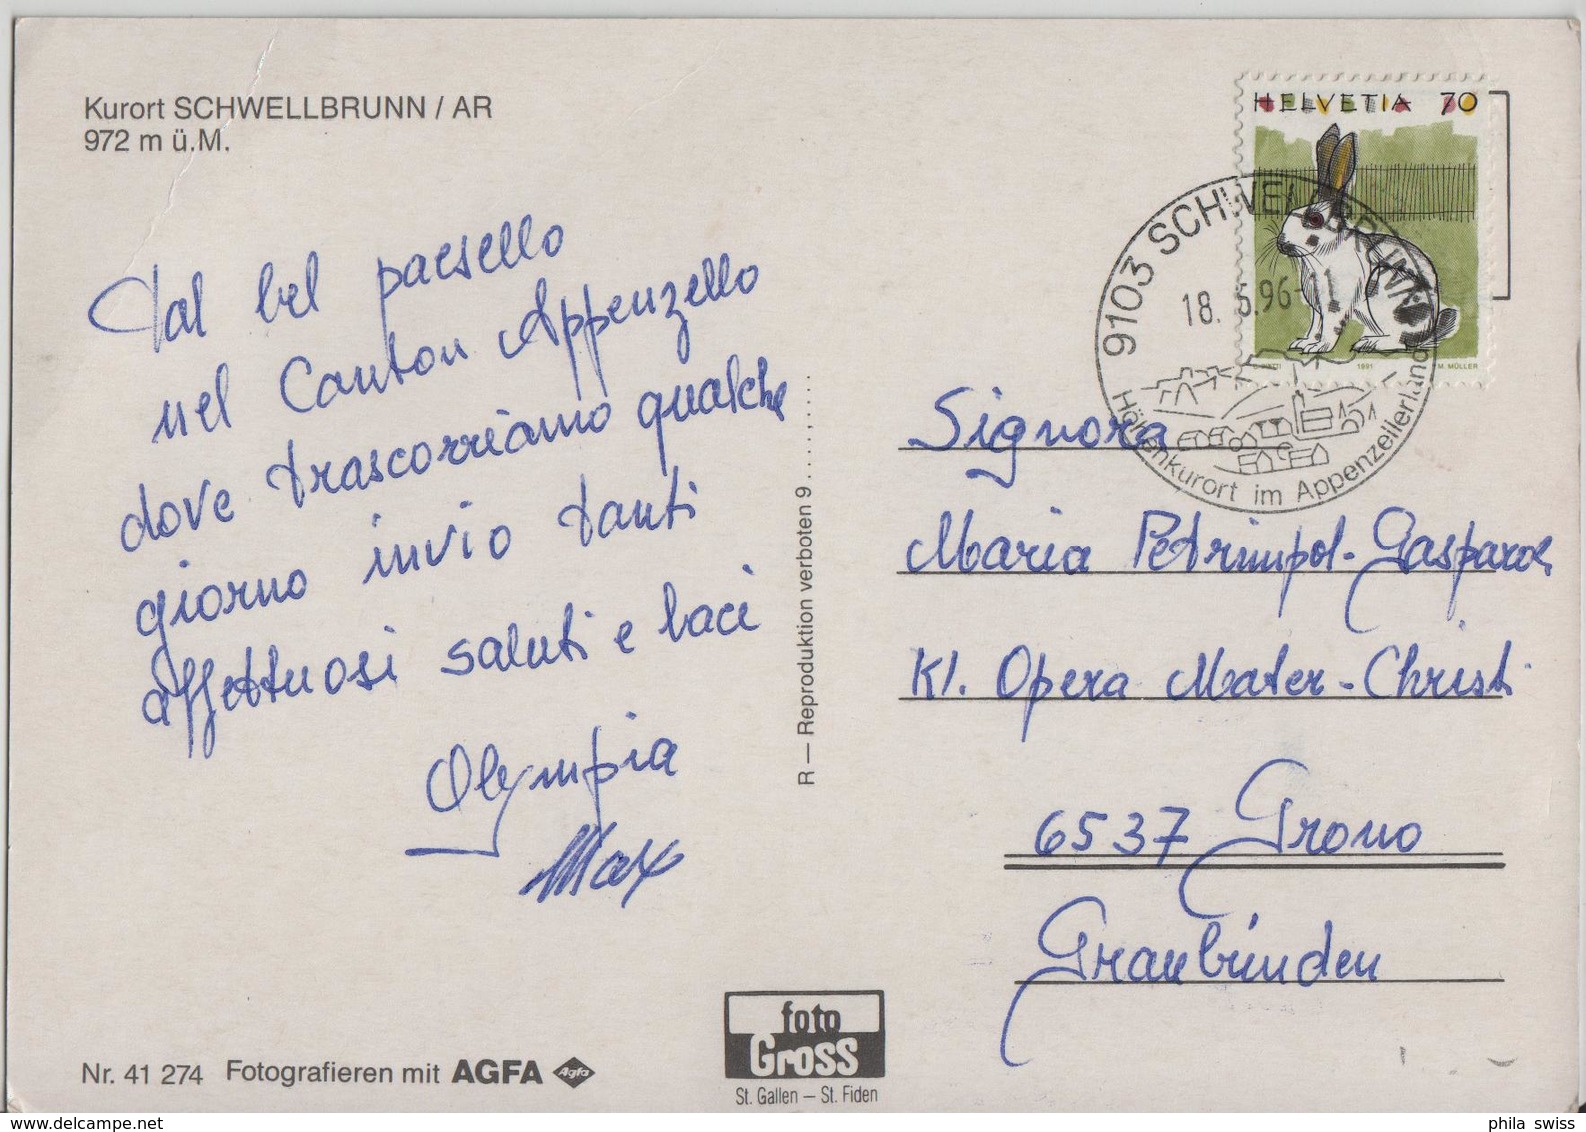 Kurort SCHWELLBRUNN / AR
972 m ü.M.
Dal bel paesello
nel Canton Appenzello
dove trascorriamo qualche
giorno invio tanti
affettuosi saluti e baci
Olympia
Max
Nr. 41 274 Fotografieren mit AGFA Agfa
R — Reproduktion verboten 9......,....
foto
Gross
St. Gallen – St. Fiden
HELVETIA 70
1991 M. MÜLLER
9103 SCHWELLBRUNN
18. 96-11
Höhenkurort im Appenzellerland
Signora
Maria Petrimpol-Gasparoli
Kl. Opera Mater-Christi
6537 Grono
Graubünden
phila swiss